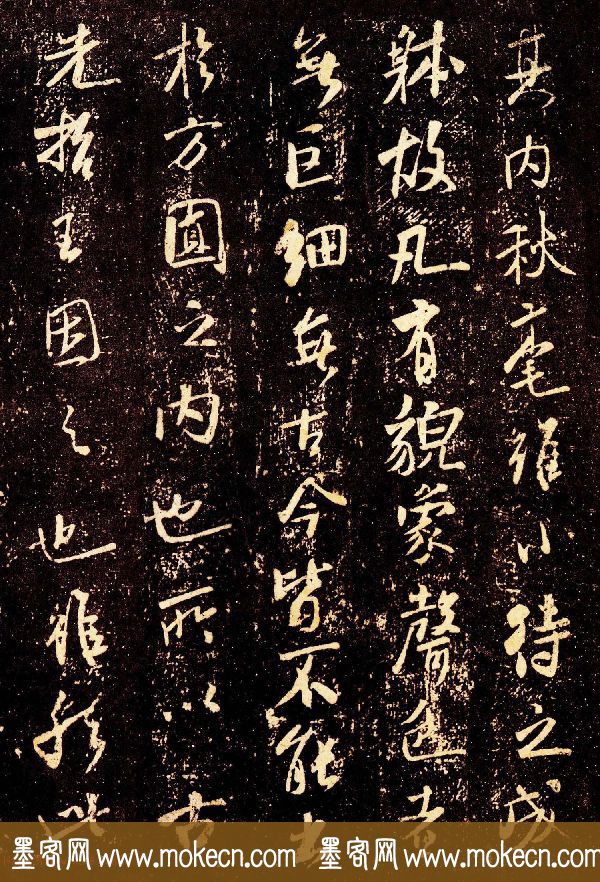 其内秋毫雖小待之成
躰故凡有貌象聲色者
無巨细無古今皆不能出
於方圓之内也所以古
先哲王因之也雖然此
墨客网 www.mokecn.com 墨客网 www.mokecn.com